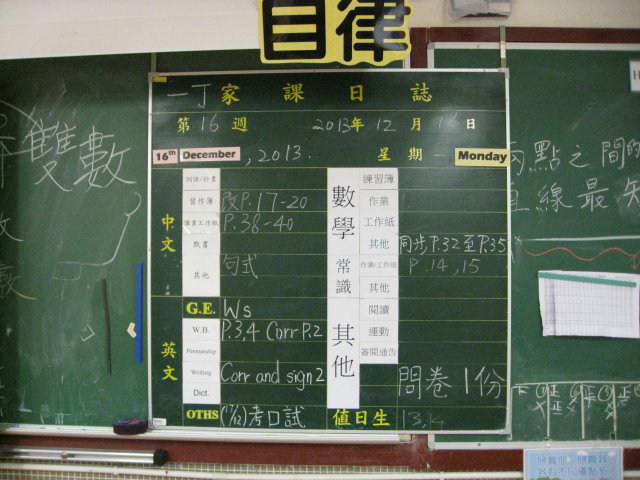 自律
一丁家課日誌
第16週 2013年12月16日
16th December, 2013. 星期一 Monday
中文
詞語/抄書
習作簿 改P.17-20
P.38-40
默書
其他 句式
英文
G.E. Ws
W.B. P.3,4 Corr P.2
Penmanship
Writing Corr and sign 2
Dict.
OTHS (17/12)考口試
數學
練習簿
作業
工作紙
其他 同步P.32至P.35
常識
作業/工作紙 P.14,15
其他
其他
閱讀
運動
簽閱通告
問卷1份
值日生 13,14
雙數
兩點之間的
直線最